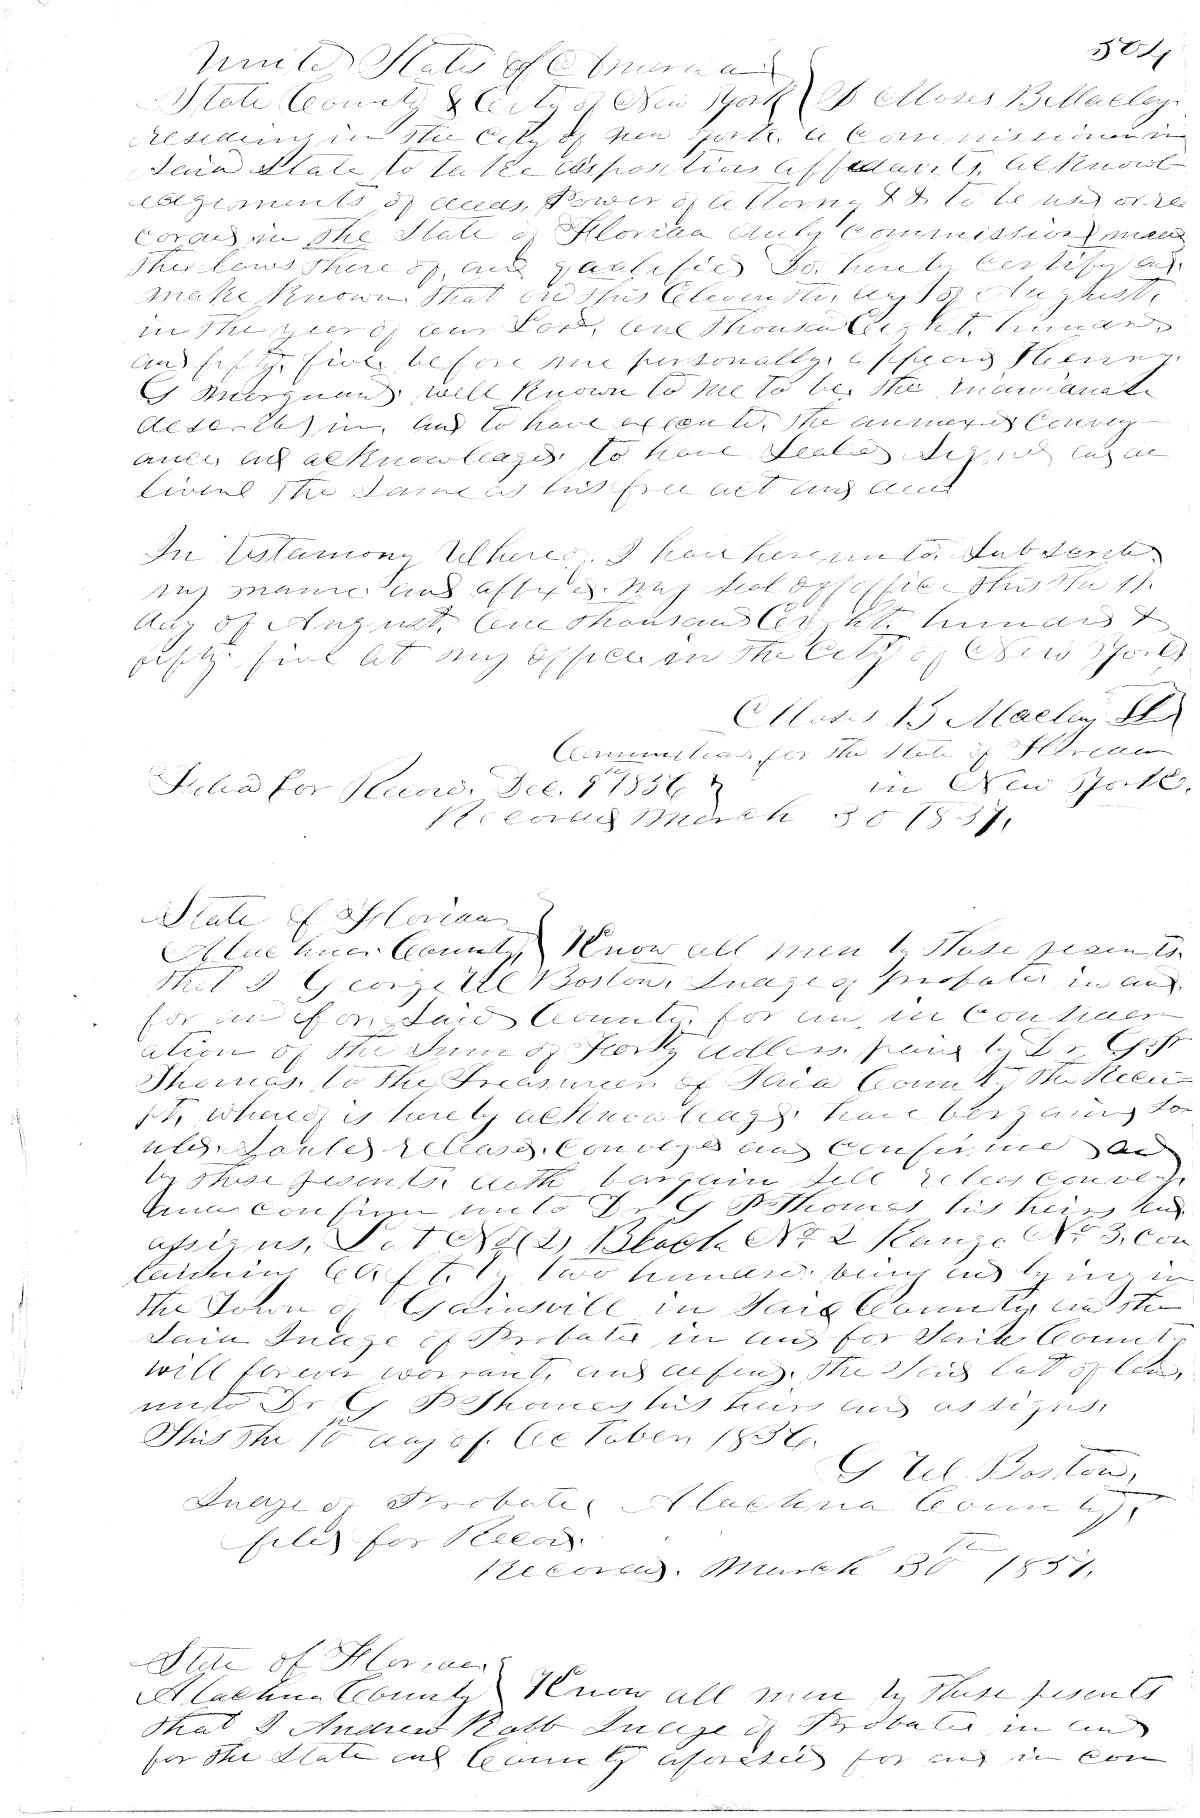 504
United States of America
State County & City of New York } I Moses B Maclay
residing in the City of New York. a Commissioner in
said State to take depositions affidavits, acknowl
edgements of deeds, Power of Attorny & & to be used or re
corded in the State of Florida duly Commissioned under
the laws there of, and qualified Do, hereby Certify and
make known that on this Eleventh, day of August,
in the year of our Lord, one thousand Eight, hundred
and fifty, five, before me personally, appeared Henry
G Murquand, well known to me to be, the individual
described in, and to have executed, the annexed Convey
ance, and acknowledged, to have Sealed Signed and de
livered the same as his free act and deed
In testamony Whereof, I have hereunto Subscribed
my name and affixed my seal of office this the 11
day of August, one thousand Eight, hundred &
fifty five at my office in the City of New York
Moses B Maclay
Commissioner for the State of Florida
Filed for Record. Dec. 9th 1856 } in New York.
Recorded March 30 1857.
State of Florida
Alachua County, } Know all men by these presents.
that I George W Boston, Judge of Probate in and
for and for, Said County, for and, in Consider
ation of the Sum of Forty dollars, paid by Dr G P
Thomas. to the Treasurer, of Said County the Recei
pt, whereof is hereby acknowledged, have bargained So
released, conveyed and confirmed and
by these presents, doth bargain sell releas convey
and confirm unto Dr G P Thomas his heirs and
assigns, Lot No (2), Block No 2 Range No 3, con
taining by two hundred, being and lying in
the Town of Gainsvill in Said County, and the
Said Judge of Probate in and for Said County
will forever warrant, and defend, the Said lot of land,
unto Dr G P Thomas his heirs and assigns,
This the 10th day of October 1856.
G W Boston,
Judge of Probate, Alachua County,
filed for Record.
Recorded. March 30th 1857.
State of Florida
Alachua County } Know all men by these presents
that I Andrew Robb Judge of Probate in and
for the State and County aforesaid for and in con